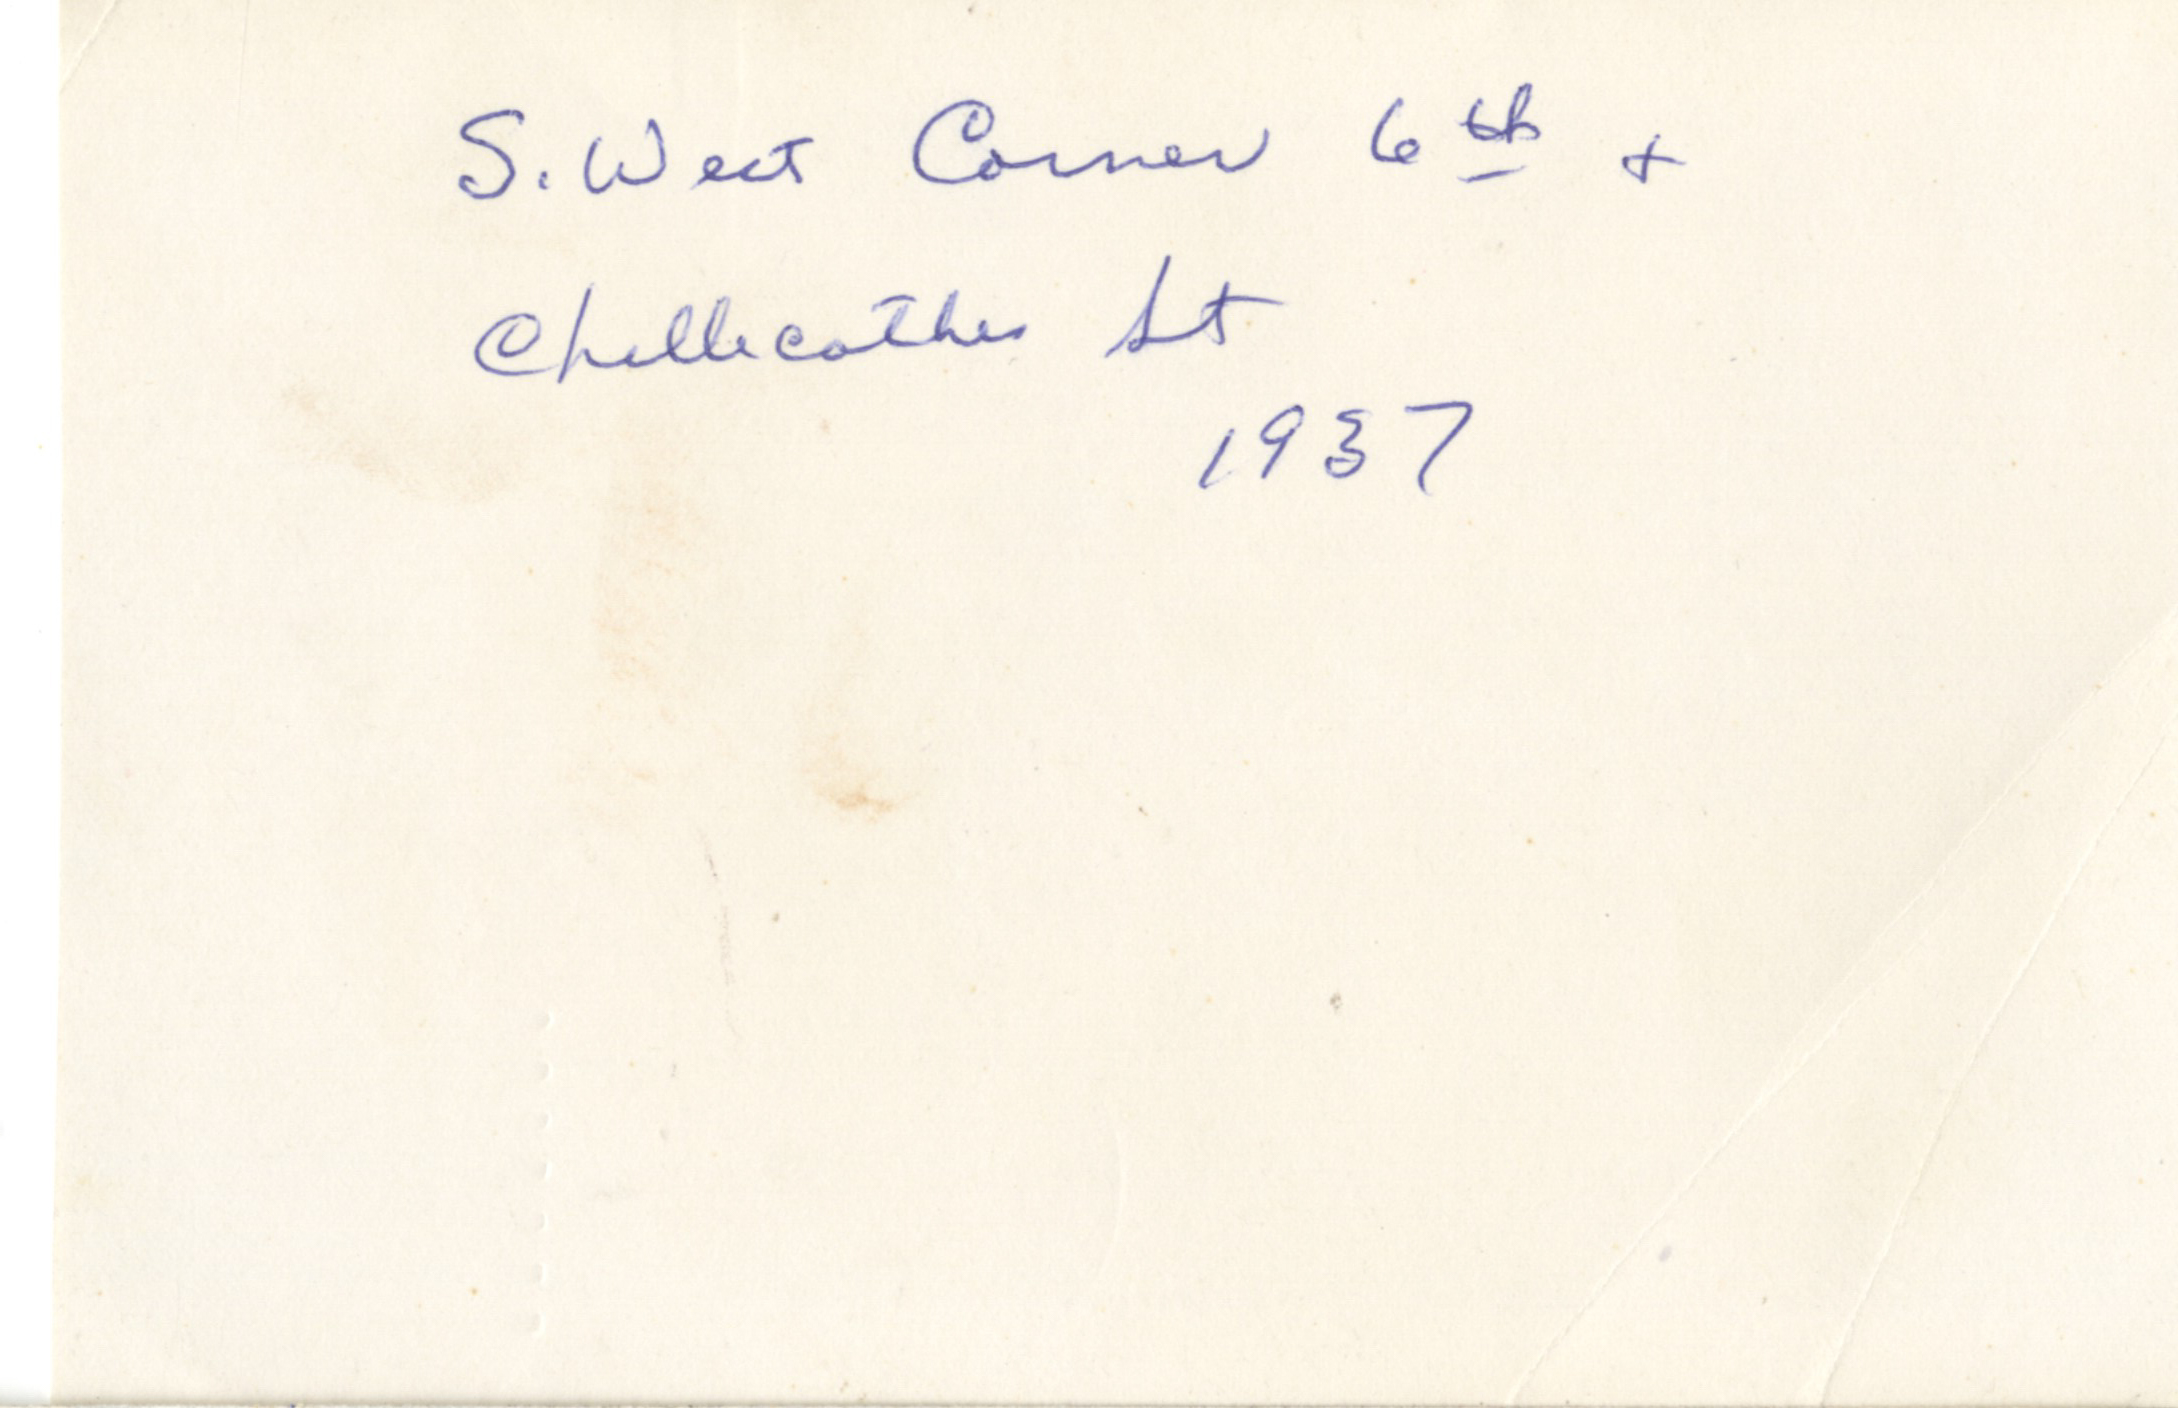 S. West Corner 6th +
Chellecothes St
1937